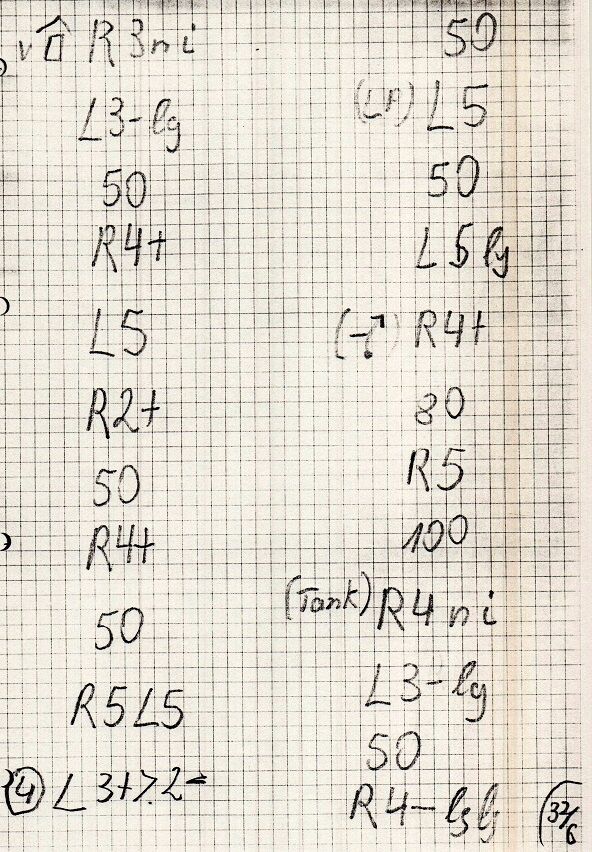 v R3ni
L3-lg
50
R4+
L5
R2+
50
R4+
50
R5 L5
4 L3+>.2-
50
L5
50
L5 lg
R4+
80
R5
100
(Tank) R4 ni
L3-lg
50
R4-lg
32/6